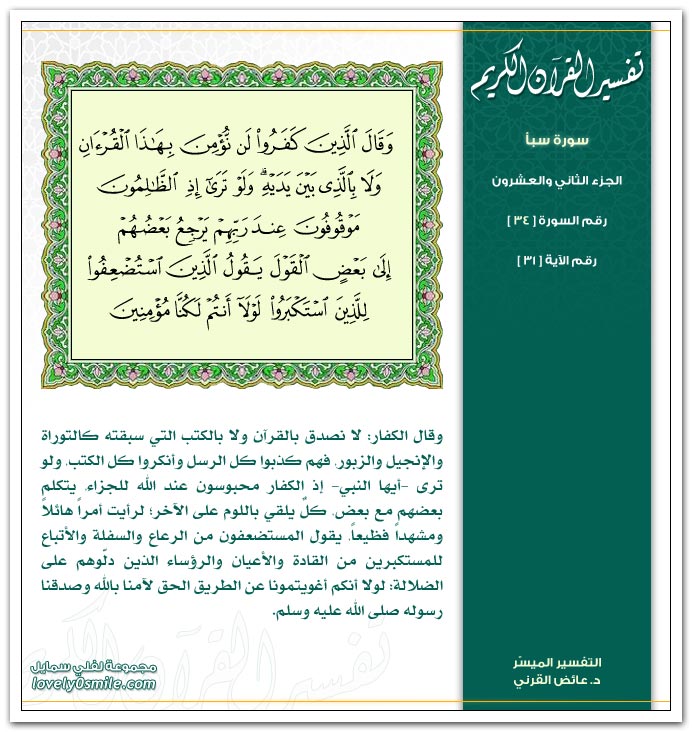 تفسير القرآن الكريم
سورة سبأ
الجزء الثاني والعشرون
رقم السورة [ ٣٤ ]
رقم الآية [ ٣١ ]
وَقَالَ ٱلَّذِينَ كَفَرُوا۟ لَن نُّؤْمِنَ بِهَـٰذَا ٱلْقُرْءَانِ
وَلَا بِٱلَّذِى بَيْنَ يَدَيْهِ ۗ وَلَوْ تَرَىٰٓ إِذِ ٱلظَّـٰلِمُونَ
مَوْقُوفُونَ عِندَ رَبِّهِمْ يَرْجِعُ بَعْضُهُمْ
إِلَىٰ بَعْضٍ ٱلْقَوْلَ يَقُولُ ٱلَّذِينَ ٱسْتُضْعِفُوا۟
لِلَّذِينَ ٱسْتَكْبَرُوا۟ لَوْلَآ أَنتُمْ لَكُنَّا مُؤْمِنِينَ
وقال الكفار: لا نصدق بالقرآن ولا بالكتب التي سبقته كالتوراة
والإنجيل والزبور، فهم كذبوا كل الرسل وأنكروا كل الكتب، ولو
ترى -أيها النبي- إذ الكفار محبوسون عند الله للجزاء، يتكلم
بعضهم مع بعض، كلٌ يلقي باللوم على الآخر؛ لرأيت أمراً هائلاً
ومشهداً فظيعاً، يقول المستضعفون من الرعاع والسفلة والأتباع
للمستكبرين من القادة والأعيان والرؤساء الذين دلّوهم على
الضلالة: لولا أنكم أغويتمونا عن الطريق الحق لآمنا بالله وصدقنا
رسوله صلى الله عليه وسلم.
التفسير الميسّر
د. عائض القرني
مجموعة لفلي سمايل
lovely0smile.com
تفسير القرآن الكريم